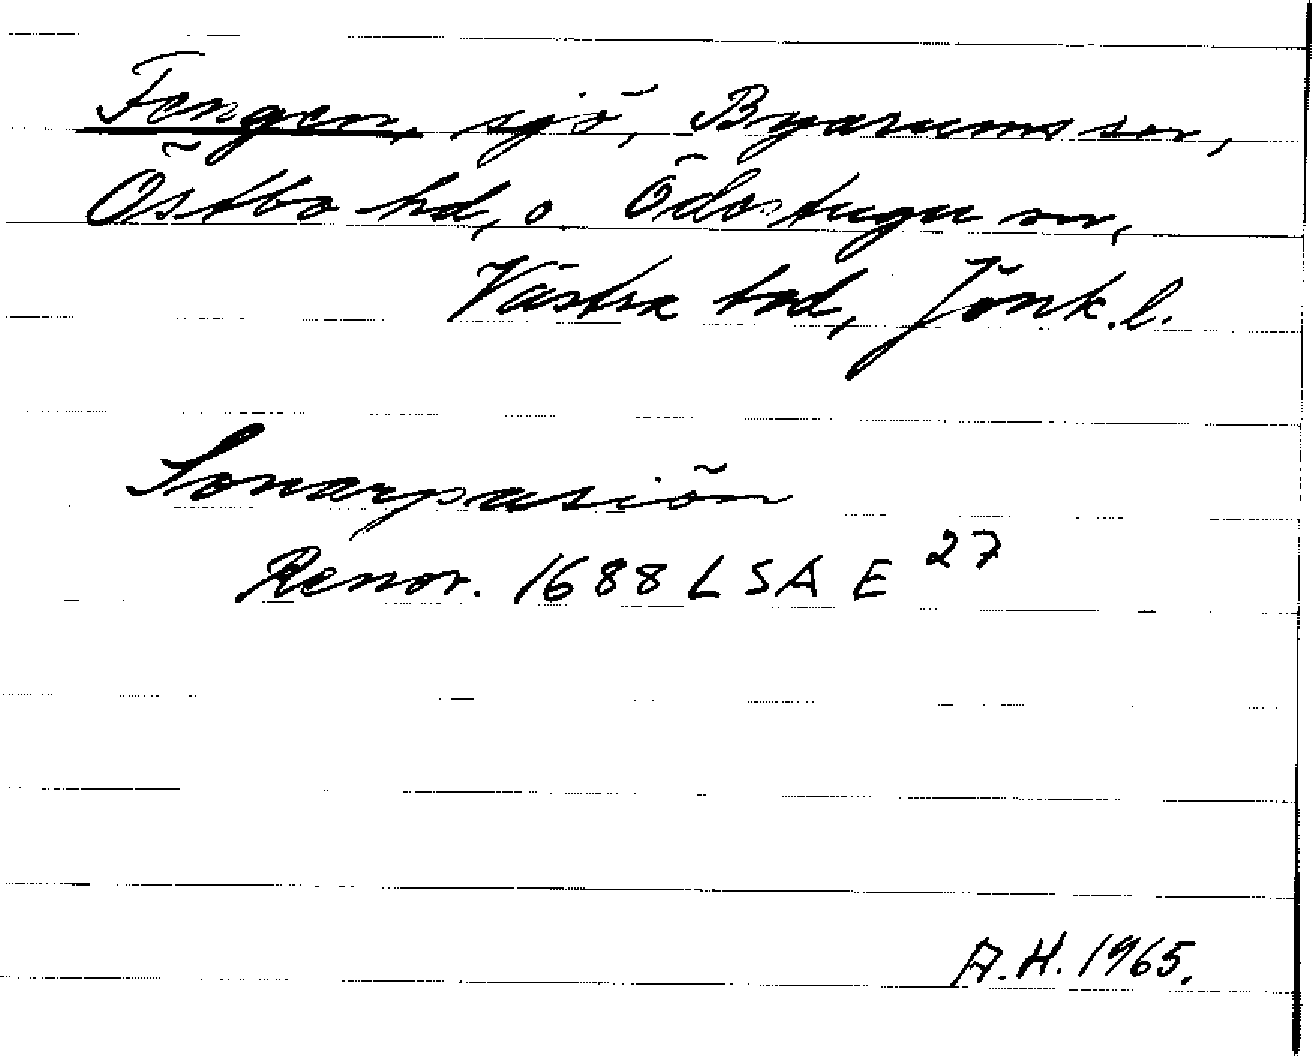 Fengen, sjö, Byarums sn,
Östbo hd, o. Ödestugu sn,
Västra hd, Jönk. l.
Sonarpasiön
Renov. 1688 LSA E 27
A.H. 1965.